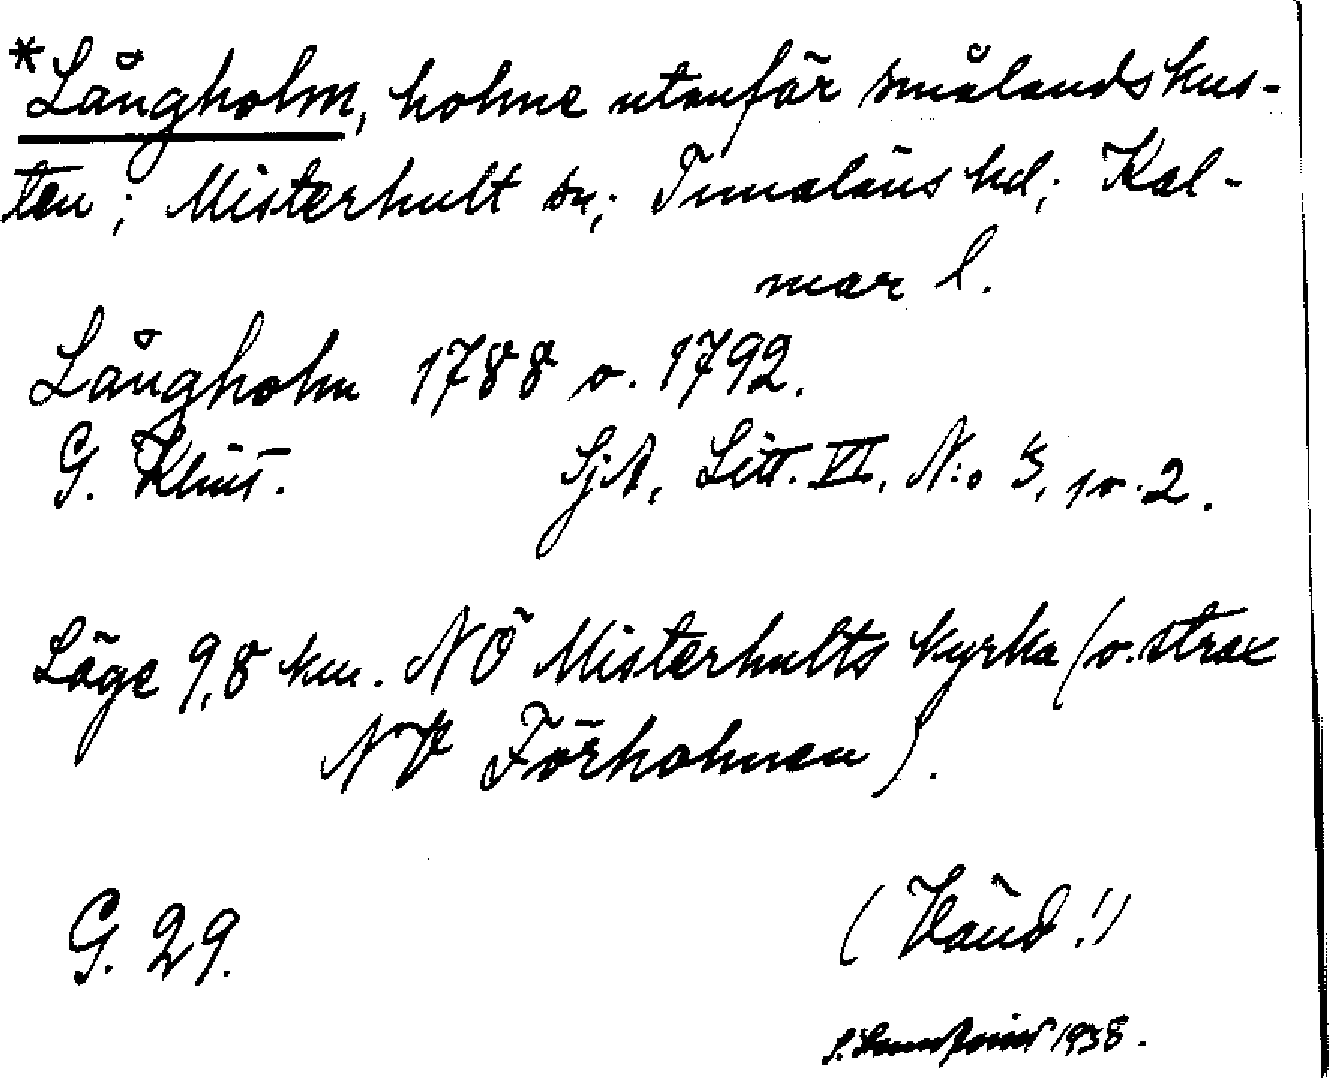 *Långholm, holme utanför smålandskus-
ten; Misterhult sn; Tunaläns hd; Kal-
mar l.
Långholm 1788 o. 1792.
G. Klint. SjA, Litt. VI, N:o 3, 1 o. 2.
Läge 9,8 km. NÖ Misterhults kyrka (o. strax
NV Förholmen).
G. 29.
(Vänd!)
1938.